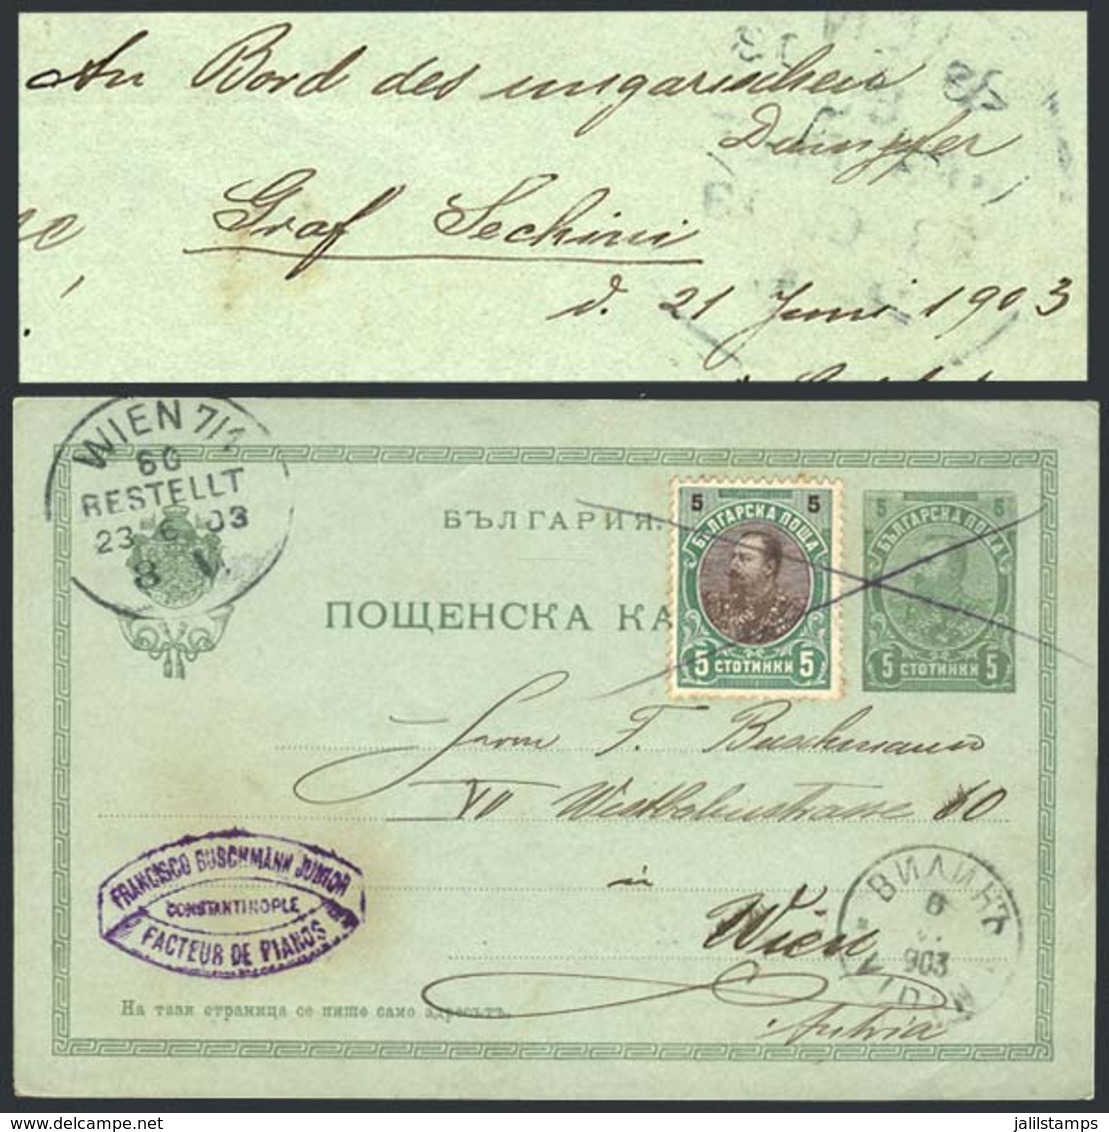 An Bord des ungarischen
Dampfer
Graf Sechini
d. 21 Juni 1903
WIEN 7/1
60
BESTELLT
23 6 03
8 V.
БЪЛГАРИЯ.
ПОЩЕНСКА КА
5 5
БЪЛГАРСКА ПОЩА
5 СТОТИНКИ 5
5 5
БЪЛГАРСКА ПОЩА
5 СТОТИНКИ 5
Herrn F. Buschmann
VII Westbahnstrasse 60
in
Wien
Austria
FRANCISCO BUSCHMANN JUNIOR
CONSTANTINOPLE
FACTEUR DE PIANOS
ВИДИНЪ
903
VIDIN
На тази страница се пише само адресътъ.
jalilstamps